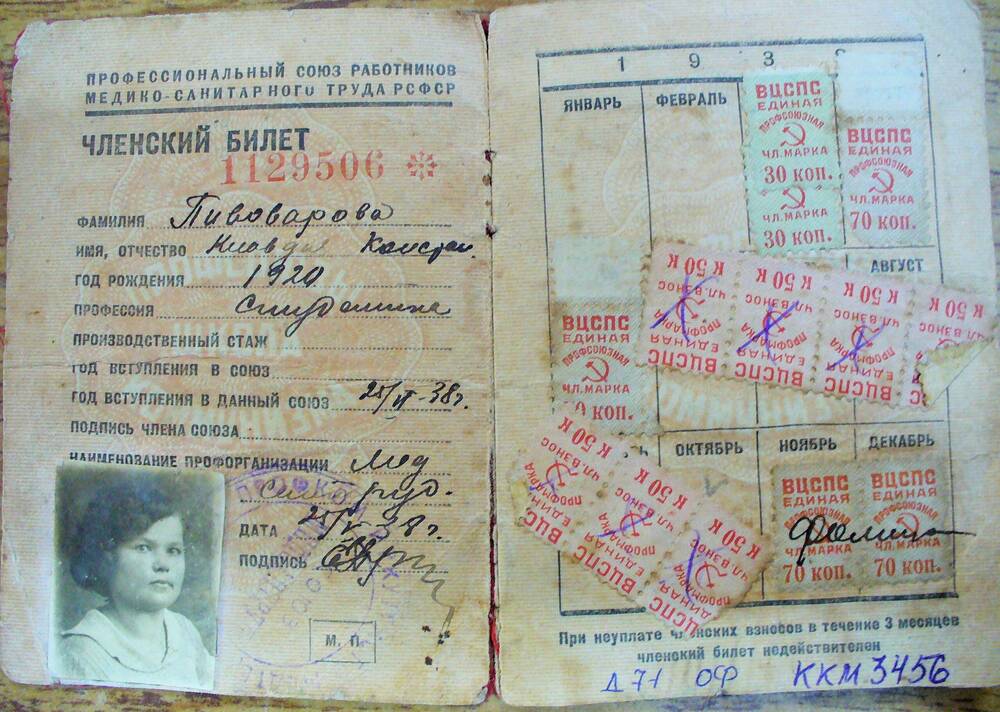 ПРОФЕССИОНАЛЬНЫЙ СОЮЗ РАБОТНИКОВ
МЕДИКО-САНИТАРНОГО ТРУДА РСФСР
ЧЛЕНСКИЙ БИЛЕТ
1129506
ФАМИЛИЯ Пивоварова
ИМЯ, ОТЧЕСТВО Клавдия Констан.
ГОД РОЖДЕНИЯ 1920
ПРОФЕССИЯ Студентка
ПРОИЗВОДСТВЕННЫЙ СТАЖ
ГОД ВСТУПЛЕНИЯ В СОЮЗ
ГОД ВСТУПЛЕНИЯ В ДАННЫЙ СОЮЗ 38г.
ПОДПИСЬ ЧЛЕНА СОЮЗА
НАИМЕНОВАНИЕ ПРОФОРГАНИЗАЦИИ Мед
ДАТА 38г.
ПОДПИСЬ
М. П.
1 9 3
ЯНВАРЬ ФЕВРАЛЬ
ВЦСПС
ЕДИНАЯ
ПРОФСОЮЗНАЯ
ЧЛ. МАРКА
30 КОП.
ЧЛ. МАРКА
30 КОП.
ВЦСПС
ЕДИНАЯ
ПРОФСОЮЗНАЯ
ЧЛ. МАРКА
70 КОП.
АВГУСТ
К 50 К К 50 К К 50 К К 50 К
ЧЛ. ВЗНОС ЧЛ. ВЗНОС ЧЛ. ВЗНОС ЧЛ. ВЗНОС
ПРОФМАРКА ПРОФМАРКА ПРОФМАРКА
ЕДИНАЯ ЕДИНАЯ ЕДИНАЯ
ВЦСПС ВЦСПС ВЦСПС
ВЦСПС
ЕДИНАЯ
ПРОФСОЮЗНАЯ
ЧЛ. МАРКА
0 КОП.
ОКТЯБРЬ НОЯБРЬ ДЕКАБРЬ
К 50 К К 50 К К 50 К
ЧЛ. ВЗНОС ЧЛ. ВЗНОС ЧЛ. ВЗНОС
ПРОФМАРКА ПРОФМАРКА ПРОФМАРКА
ЕДИНАЯ ЕДИНАЯ
ВЦСПС
ВЦСПС ВЦСПС
ЕДИНАЯ ЕДИНАЯ
ПРОФСОЮЗНАЯ ПРОФСОЮЗНАЯ
ЧЛ. МАРКА ЧЛ. МАРКА
70 КОП. 70 КОП.
При неуплате членских взносов в течение 3 месяцев
членский билет недействителен
Д 71 ОФ ККМ 3456